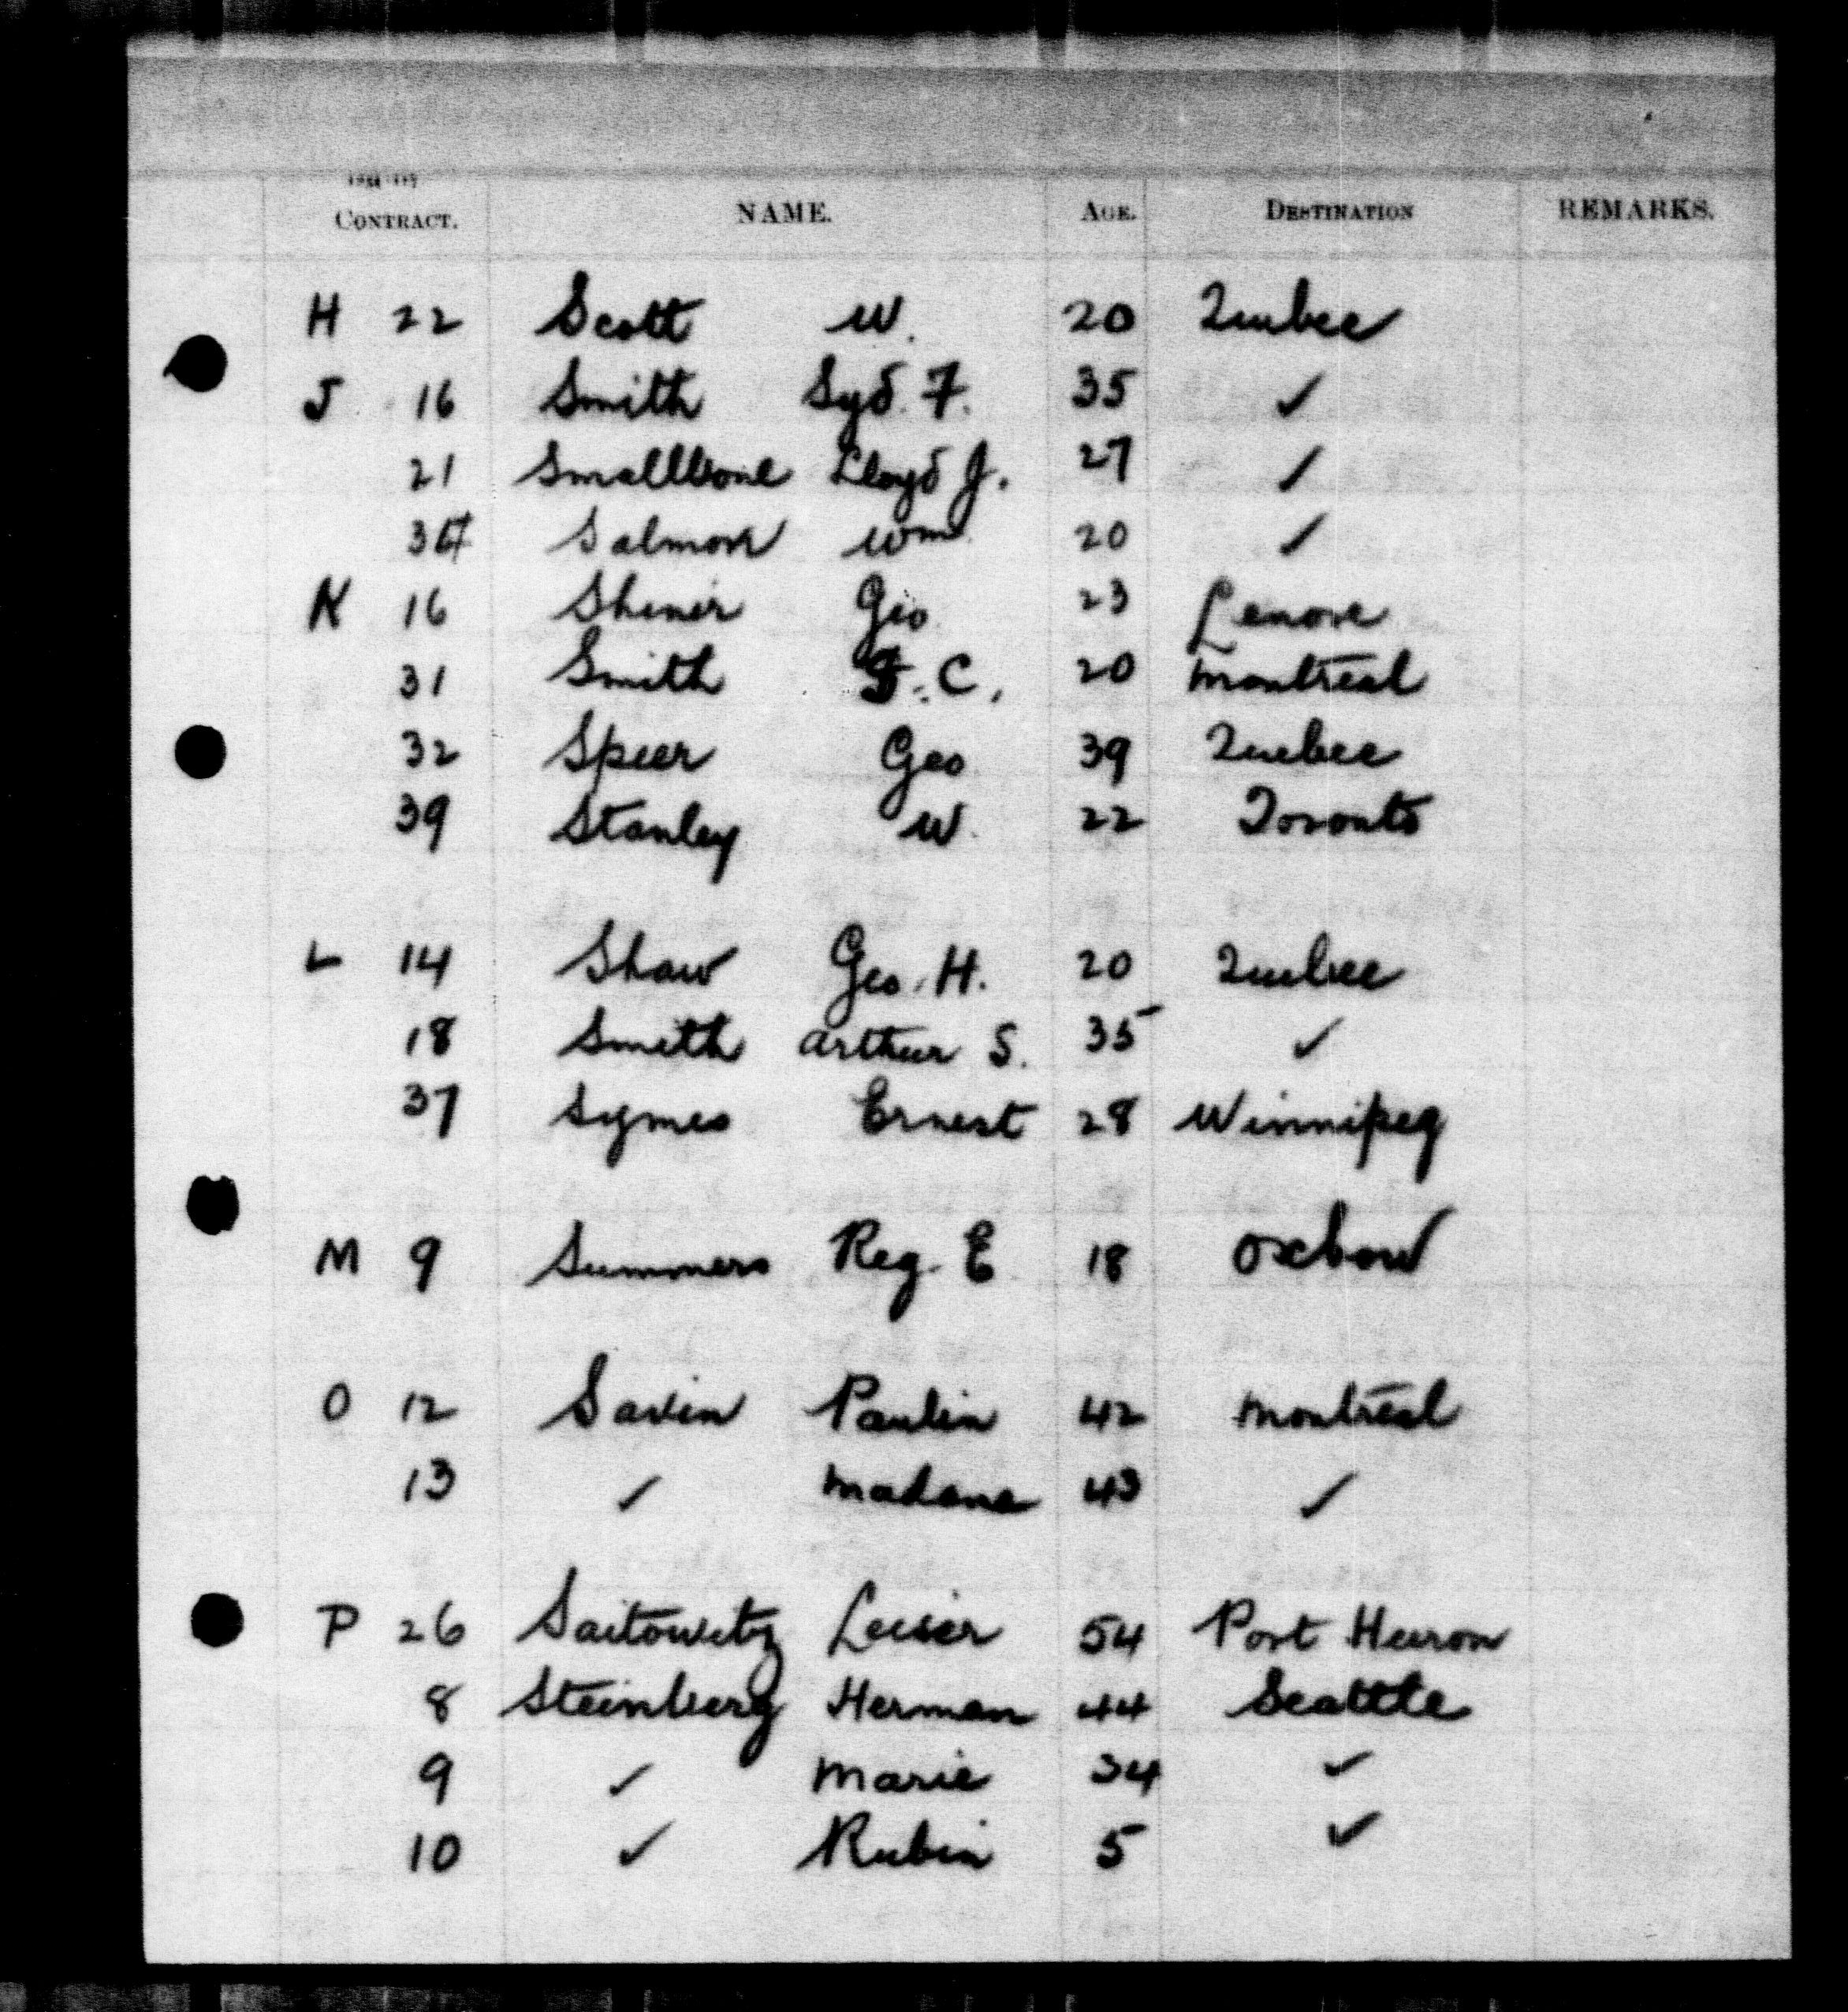 CONTRACT. NAME. AGE. DESTINATION REMARKS.
H 22 Scott W. 20 Quebec
J 16 Smith Syd. F. 35 ✓
21 Smallbone Lloyd J. 27 ✓
Salmon Wm 20 ✓
K 16 Shiner Geo 23 Lenore
31 Smith F. C. 20 Montreal
32 Speer Geo 39 Quebec
39 Stanley W. 22 Toronto
L 14 Shaw Geo. H. 20 Quebec
18 Smith Arthur S. 35 ✓
37 Symes Ernest 28 Winnipeg
M 9 Summers Reg. E 18 Oxbow
O 12 Savin Paulin 42 Montreal
13 ✓ Madame 43 ✓
P 26 Saitowitz Leiser 54 Port Huron
8 Steinberg Herman 44 Seattle
9 ✓ Marie 34 ✓
10 ✓ Rubin 5 ✓